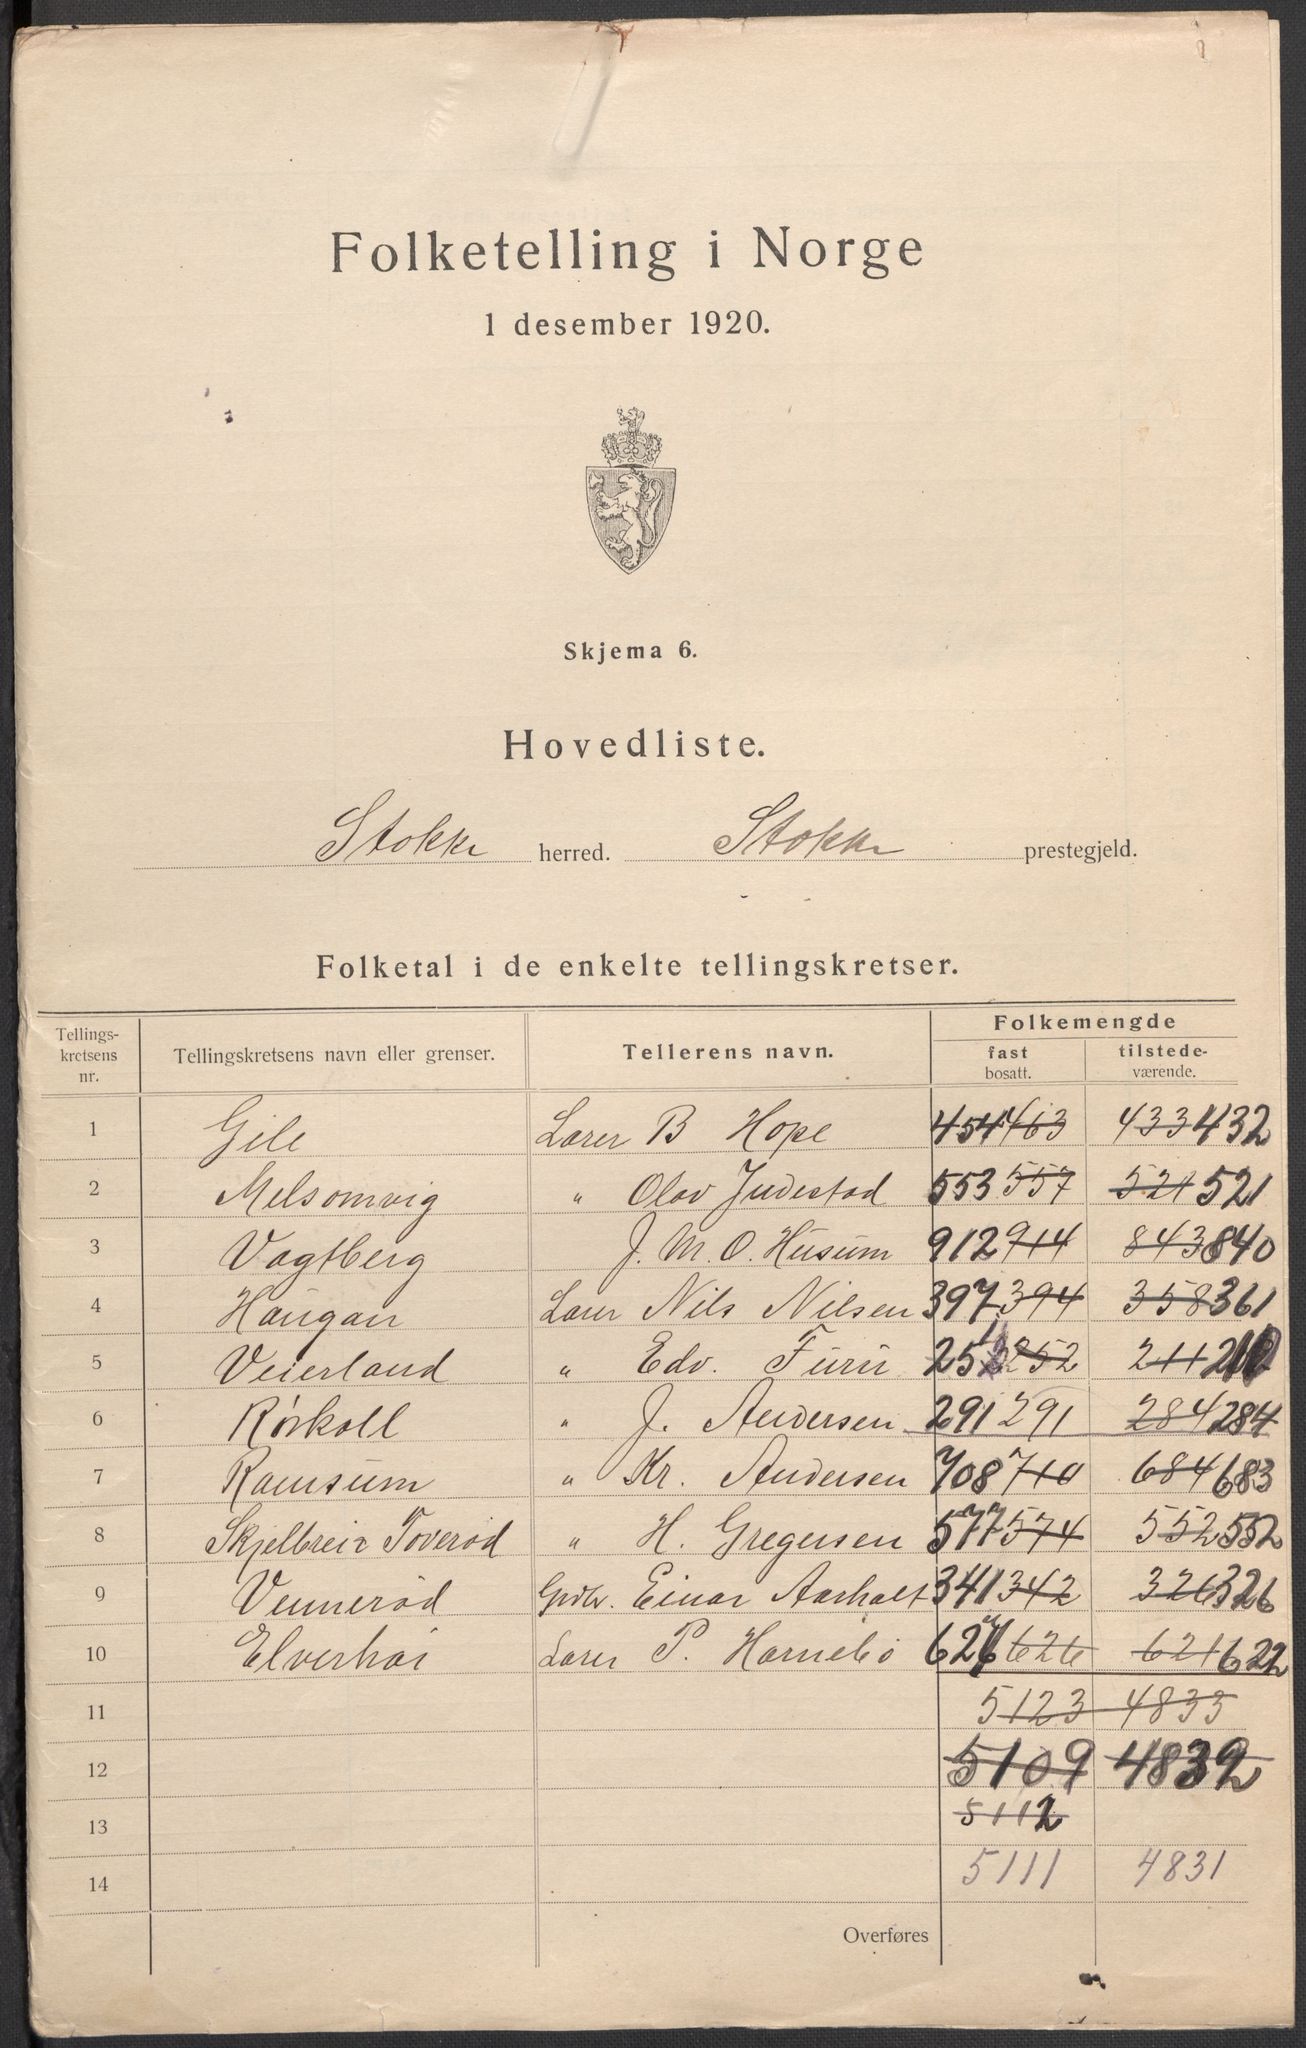 Folketelling i Norge
1 desember 1920.
Skjema 6.
Hovedliste.
Stokke herred. Stokke prestegjeld.
Folketal i de enkelte tellingskretser.
Tellings-kretsens nr. Tellingskretsens navn eller grenser. Tellerens navn. Folkemengde
fast bosatt. tilstede-værende.
1 Gile Lærer B Hope 454 463 433 432
2 Melsomvig " Olav Judestad 553 557 521 521
3 Vagtberg J. M. O. Husum 912 914 843 840
4 Haugan Lærer Nils Nilsen 397 394 358 361
5 Veierland " Edv. Furu 251 252 211 210
6 Rørkoll " J. Andersen 291 291 284 284
7 Ramsum " Kr. Andersen 708 710 684 683
8 Skjelbrei & Toverød " H. Gregersen 577 574 552 552
9 Vennerød Grdbr. Einar Aarholt 341 342 326 326
10 Elverhøi Lærer P. Hornebø 627 626 621 622
11 5123 4833
12 5109 4832
13 5112
14 5111 4831
Overføres